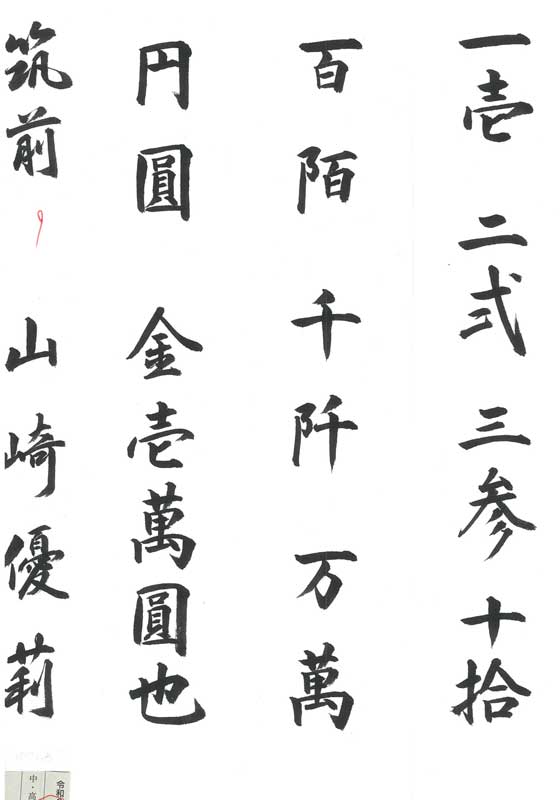 一壱 二弐 三参 十拾
百陌 千阡 万萬
円圓 金壱萬圓也
筑前 山崎優莉
令和
中・高